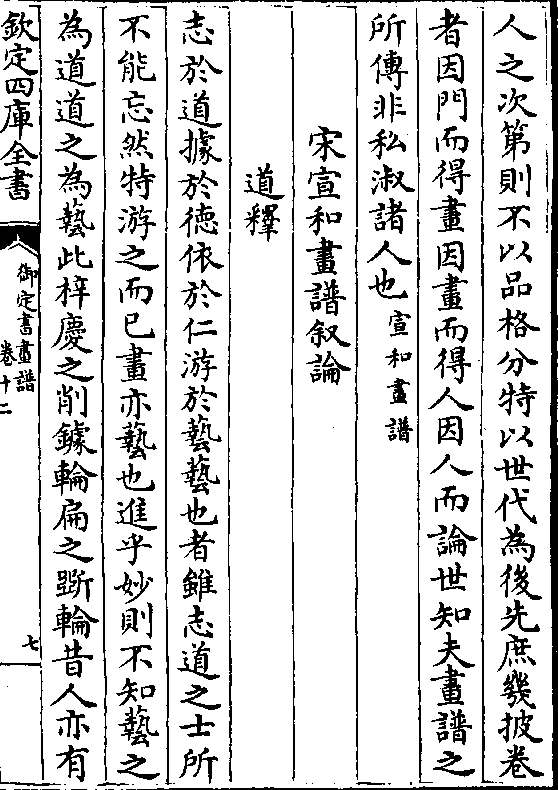 人之次第則不以品格分特以世代為後先庶幾披卷
者因門而得畫因畫而得人因人而論世知夫畫譜之
所傳非私淑諸人也宣和畫譜
宋宣和畫譜叙論
道釋
志於道據於德依於仁游於藝藝也者雖志道之士所
不能忘然特游之而已畫亦藝也進乎妙則不知藝之
為道道之為藝此梓慶之削鐻輪扁之斲輪昔人亦有
欽定四庫全書
御定書畫譜
卷十二
七